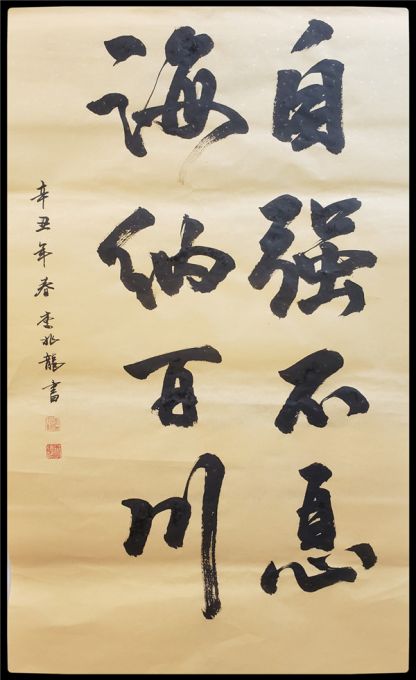 自强不息
海纳百川
辛丑年春李兆龍書